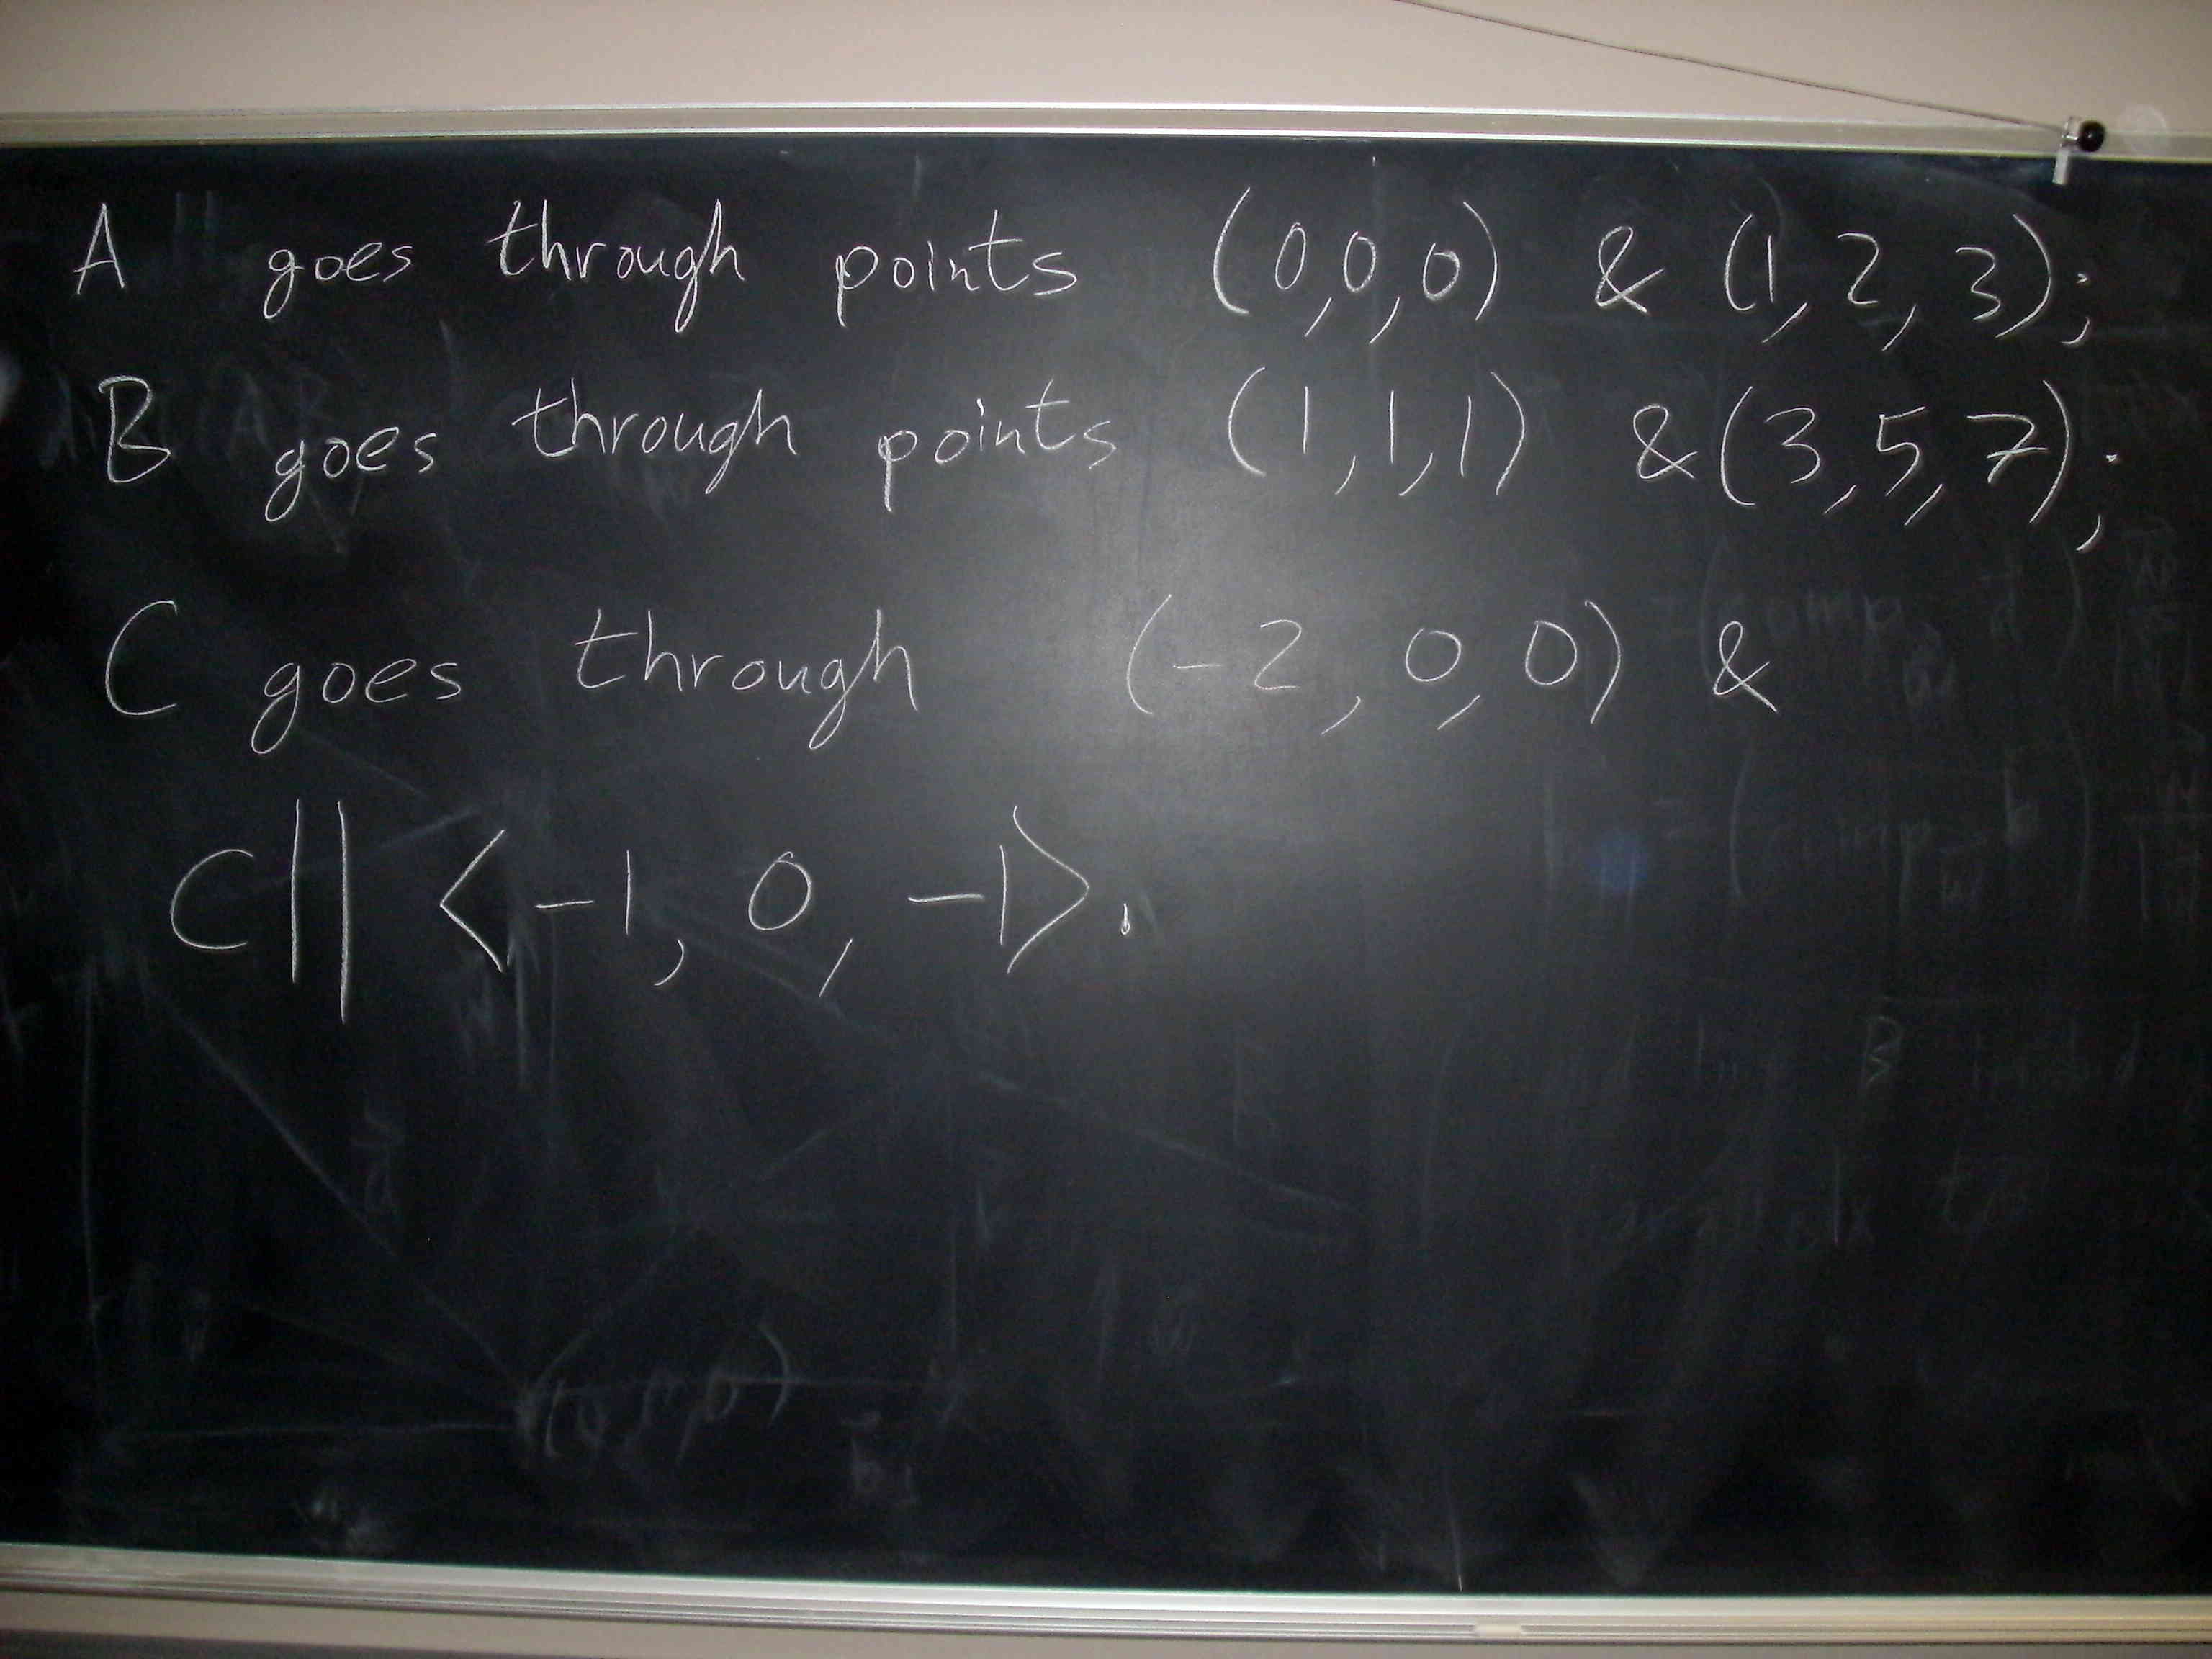 A goes through points (0,0,0) & (1,2,3);
B goes through points (1,1,1) & (3,5,7);
C goes through (-2,0,0) &
C || <-1, 0, -1>.